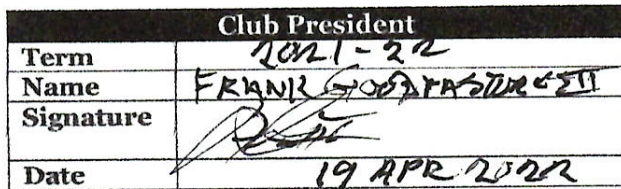 Club President
Term 2021-22
Name FRANK GOODPASTURE III
Signature
Date 19 APR 2022